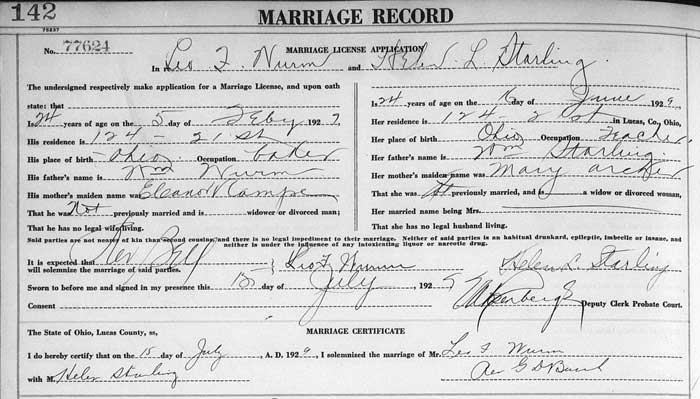 142
MARRIAGE RECORD
75237
No. 77624
MARRIAGE LICENSE APPLICATION
In re Leo F. Wurm and Helen L Starling
The undersigned respectively make application for a Marriage License, and upon oath
state: that
Is 24 years of age on the 5 day of Feby 192
His residence is 124 - 21 St
His place of birth Ohio Occupation baker
His father's name is Wm Wurm
His mother's maiden name was Eleanor Kampe
That he was Not previously married and is widower or divorced man;
That he has no legal wife living.
Is 24 years of age on the day of June 1929
Her residence is 124 21st in Lucas, Co., Ohio,
Her place of birth Ohio Occupation Teacher
Her father's name is Wm Starling
Her mother's maiden name was Mary Archer
That she was previously married, and is a widow or divorced woman,
Her married name being Mrs.
That she has no legal husband living.
Said parties are not nearer of kin than second cousins, and there is no legal impediment to their marriage. Neither of said parties is an habitual drunkard, epileptic, imbecile or insane, and
neither is under the influence of any intoxicating liquor or narcotic drug.
It is expected that Rev
will solemnize the marriage of said parties.
Leo F. Wurm
Helen L. Starling
Sworn to before me and signed in my presence this day of July, 1929
Deputy Clerk Probate Court.
Consent
The State of Ohio, Lucas County, ss,
MARRIAGE CERTIFICATE
I do hereby certify that on the 15 day of July A. D. 1929, I solemnized the marriage of Mr. Leo F Wurm
with M. Helen Starling
Rev G D